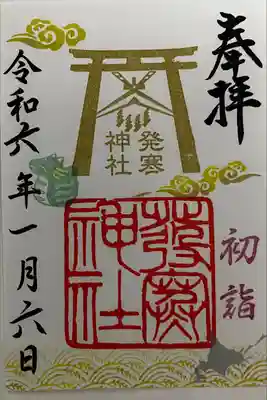 奉拝
発寒
神社
初詣
発寒
神社
令和六年一月六日